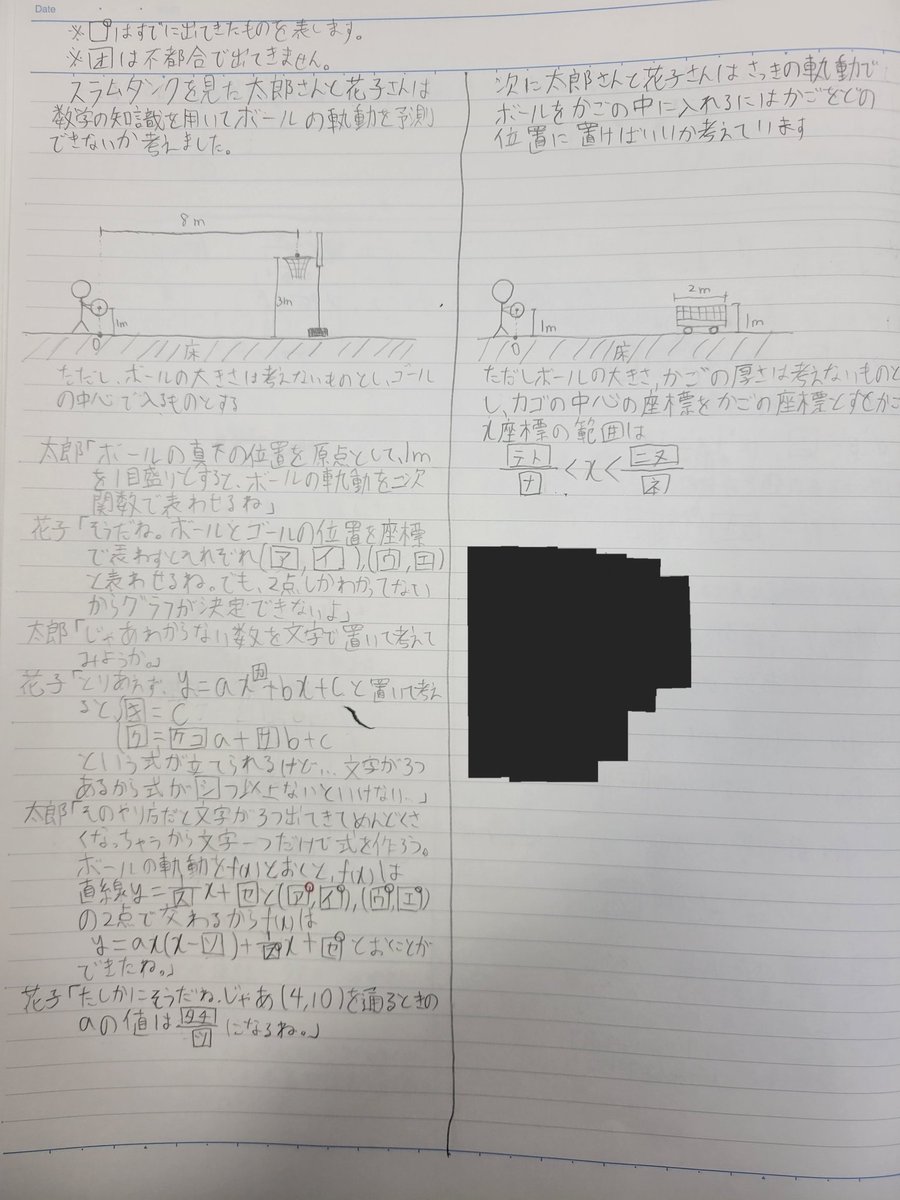 Date
※□はすでに出てきたものを表します。
※オは不都合で出てきません。
スラムダンクを見た太郎さんと花子さんは
数学の知識を用いてボールの軌動を予測
できないか考えました。
8m
3m
1m
O
床
ただし、ボールの大きさは考えないものとし、ゴール
の中心で入るものとする
太郎「ボールの真下の位置を原点として、1m
を1目盛りとすると、ボールの軌動を二次
関数で表わせるね」
花子「そうだね。ボールとゴールの位置を座標
で表わすとそれぞれ(ア,イ),(ウ,エ)
と表わせるね。でも、2点しかわかってない
からグラフが決定できないよ」
太郎「じゃあわからない数を文字で置いて考えて
みようか。」
花子「とりあえず、y=ax カ+bx+cと置いて考え
ると、キ=c
ク=ケコa+サb+c
という式が立てられるけど…文字が3つ
あるから式がシつ以上ないといけない…」
太郎「そのやり方だと文字が3つ出てきてめんどくさ
くなっちゃうから文字一つだけで式を作ろう。
ボールの軌動をf(x)とおくと、f(x)は
直線y=スx+セと(ア,イ),(ウ,エ)
の2点で交わるからf(x)は
y=ax(x-ソ)+スx+セとおくことが
できたね。」
花子「たしかにそうだね。じゃあ(4,10)を通るときの
aの値はタチ/ツになるね。」
次に太郎さんと花子さんはさっきの軌動で
ボールをかごの中に入れるにはかごをどの
位置に置けばいいか考えています
2m
1m
1m
O
床
ただしボールの大きさ,かごの厚さは考えないものと
し、カゴの中心の座標をかごの座標とするとかご
x座標の範囲は
テト/ナ<x<ニヌ/ネ